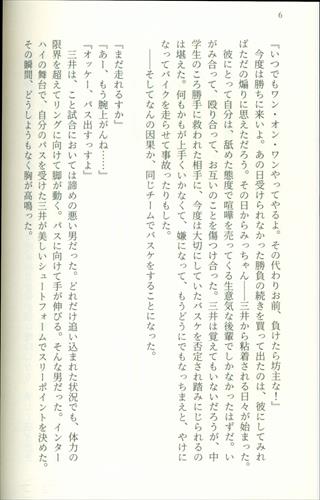 6
『いつでもワン・オン・ワンやってやるよ。その代わりお前、負けたら坊主な!』
今度は勝ちに来いよ。あの日受けられなかった勝負の続きを買って出たのは、彼にしてみれ
ばただの煽りに思えただろう。その日からみっちゃん――三井から粘着される日々が始まった。
彼にとって自分は、舐めた態度で喧嘩を売ってくる生意気な後輩でしかなかったはずだ。い
がみ合って、殴り合って、お互いのことを傷つけ合った。三井は覚えてもいないだろうが、中
学生のころ勝手に救われた相手に、今度は大切にしていたバスケを否定され踏みにじられるの
は堪えた。何もかもが上手くいかなくて、嫌になって、もうどうにでもなっちまえと、やけに
なってバイクを走らせて事故ったりもした。
――そしてなんの因果か、同じチームでバスケをすることになった。
『まだ走れるすか』
『あー、もう腕上がんね……』
『オッケー、パス出すっすよ』
三井は、こと試合においては諦めの悪い男だった。どれだけ追い込まれた状況でも、体力の
限界を超えてリングに向けて脚が動く。パスに向けて手が伸びる。そんな男だった。インター
ハイの舞台で、自分のパスを受けた三井が美しいシュートフォームでスリーポイントを決めた。
その瞬間、どうしようもなく胸が高鳴った。